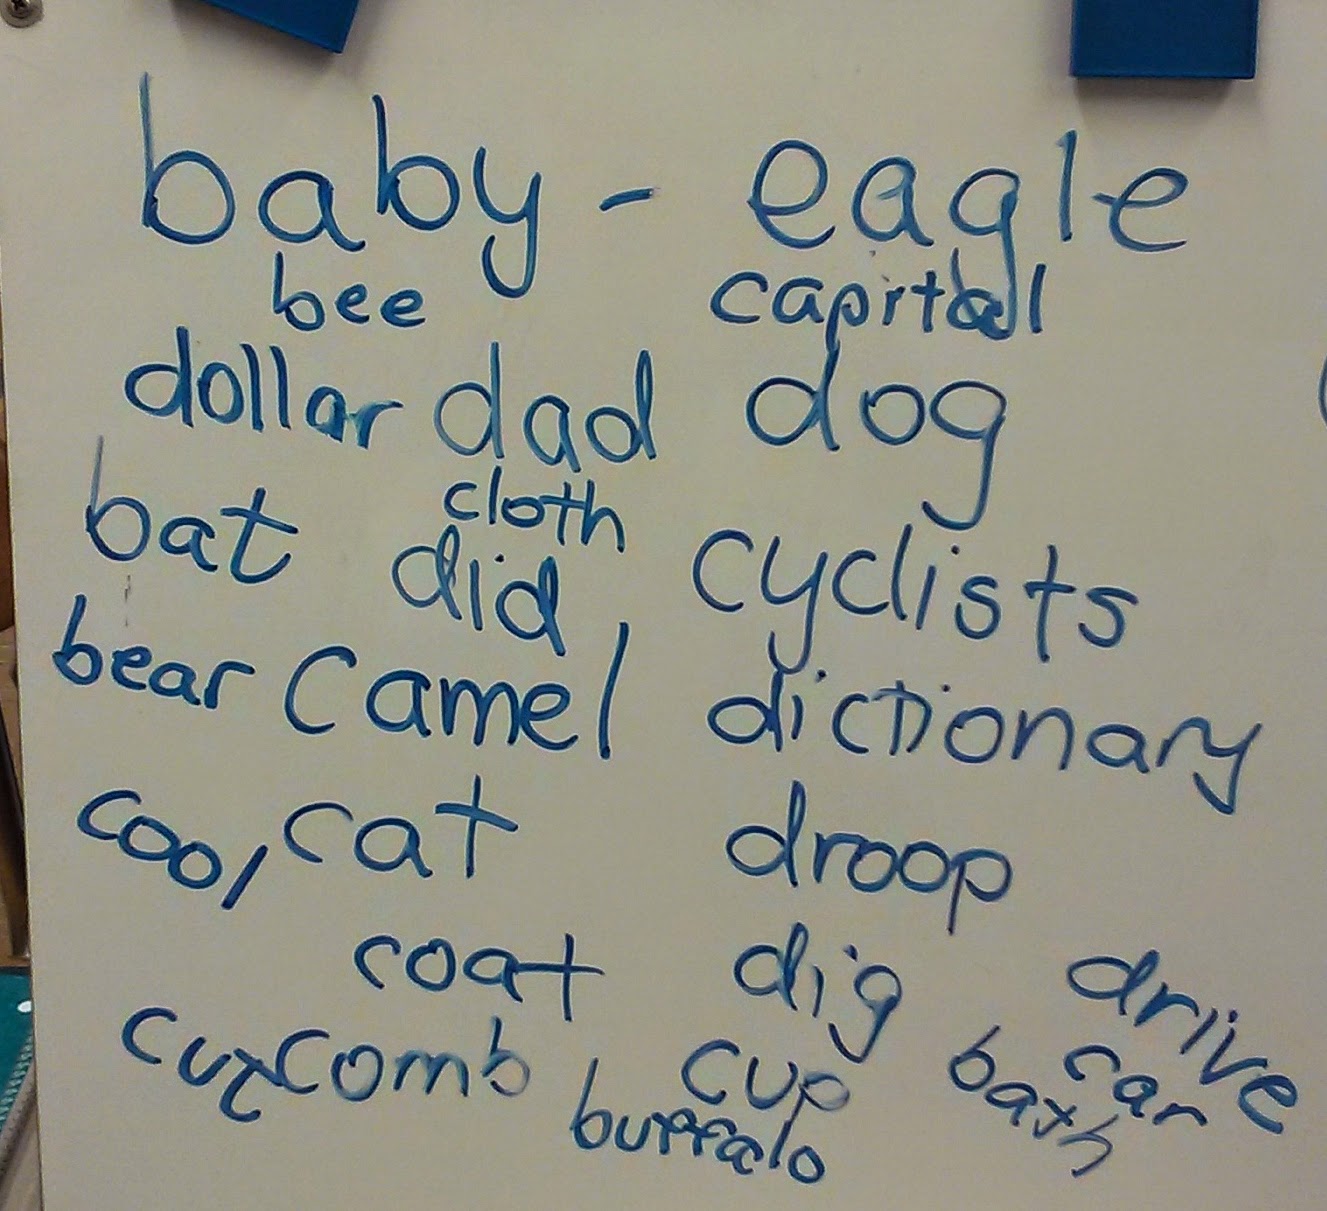 baby - eagle
bee capital
dollar dad dog
cloth
bat did cyclists
bear camel dictionary
cool cat droop
coat dig drive
cut comb cup bath car
buffalo